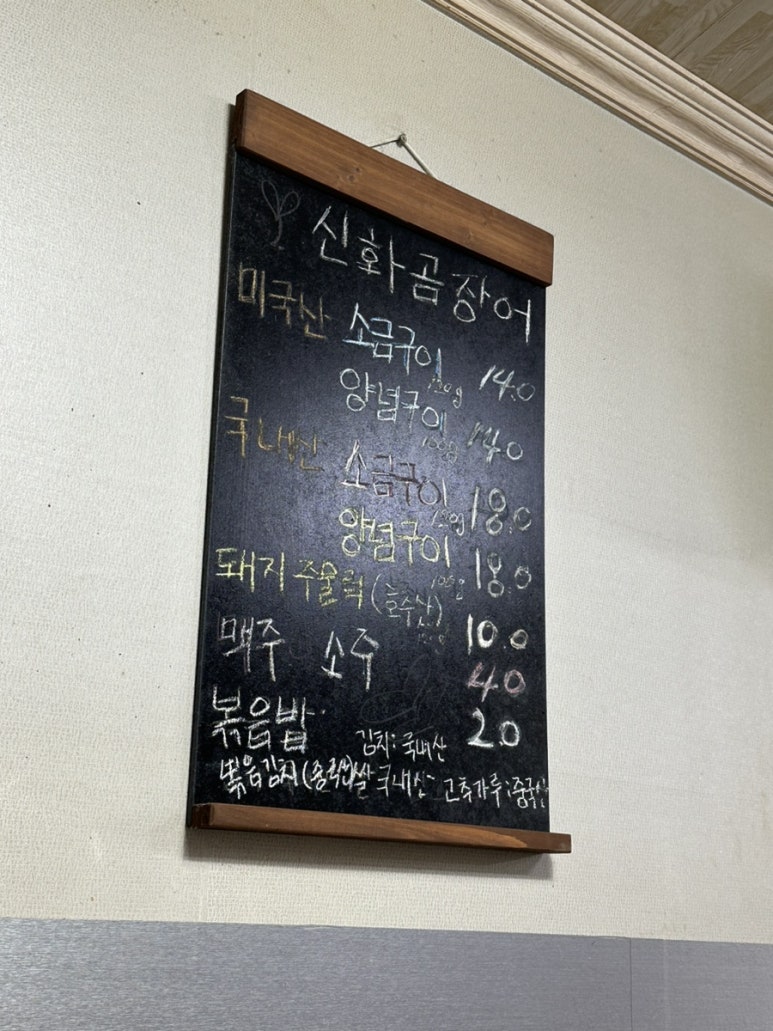 신화곰장어
미국산 소금구이 14.0
양념구이 100g 14.0
국내산 소금구이 18.0
양념구이 100g 18.0
돼지주물럭 (호주산) 10.0
맥주 소주 4.0
볶음밥 2.0
김치: 국내산
볶음김치 (중국산) 쌀 국내산 고추가루: 중국산